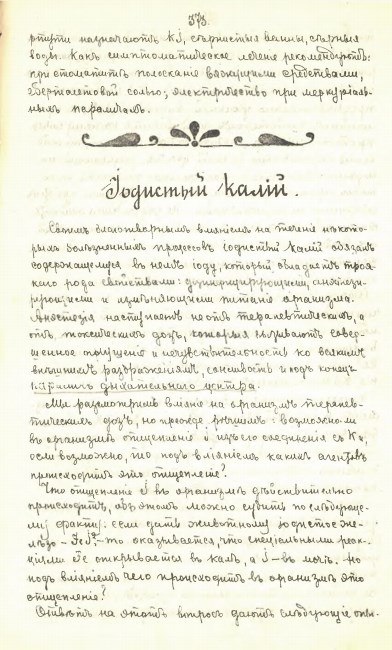 373
ртути назначаютъ KJ, сѣрнистыя ванны, сѣрныя
воды. Какъ симптоматическое лечение рекомендуютъ:
при стоматитѣ полоскание вяжущими средствами,
бертолетовой солью; электричество при меркуріаль-
ныхъ параличахъ.
Іодистый Калій.
Своимъ благотворнымъ вліяніемъ на теченіе нѣкото-
рыхъ болѣзненныхъ процессовъ іодистый калій обязанъ
содержащемуся въ немъ іоду, который обладаетъ троя-
каго рода свойствами: дезинфицирующими, анестези-
рующими и измѣняющими питаніе организма.
Анестезія наступаетъ не отъ терапевтическихъ, а
отъ токсическихъ дозъ, которыя вызываютъ совер-
шенное отупѣние и нечувствительность ко всякимъ
внѣшнимъ раздраженіямъ, сонливость и подъ конецъ
параличъ дыхательнаго центра.
Мы разсмотримъ вліяніе на организмъ терапев-
тическихъ дозъ, но прежде рѣшимъ: возможно ли
въ организмѣ отщепленіе J изъ его соединенія съ K и,
если возможно, то подъ вліяніемъ какихъ агентовъ
происходитъ это отщепленіе?
Что отщепленіе J въ организмѣ дѣйствительно
происходитъ, объ этомъ можно судить по слѣдующе-
му факту: если дать животному іодистое же-
лѣзо – то оказывается, что спеціальными реак-
ціями Fe открывается въ калѣ, а J – въ мочѣ. Но
подъ вліяніемъ чего происходитъ въ организмѣ это
отщепленіе?
Отвѣтъ на этотъ вопросъ даютъ слѣдующіе опы-